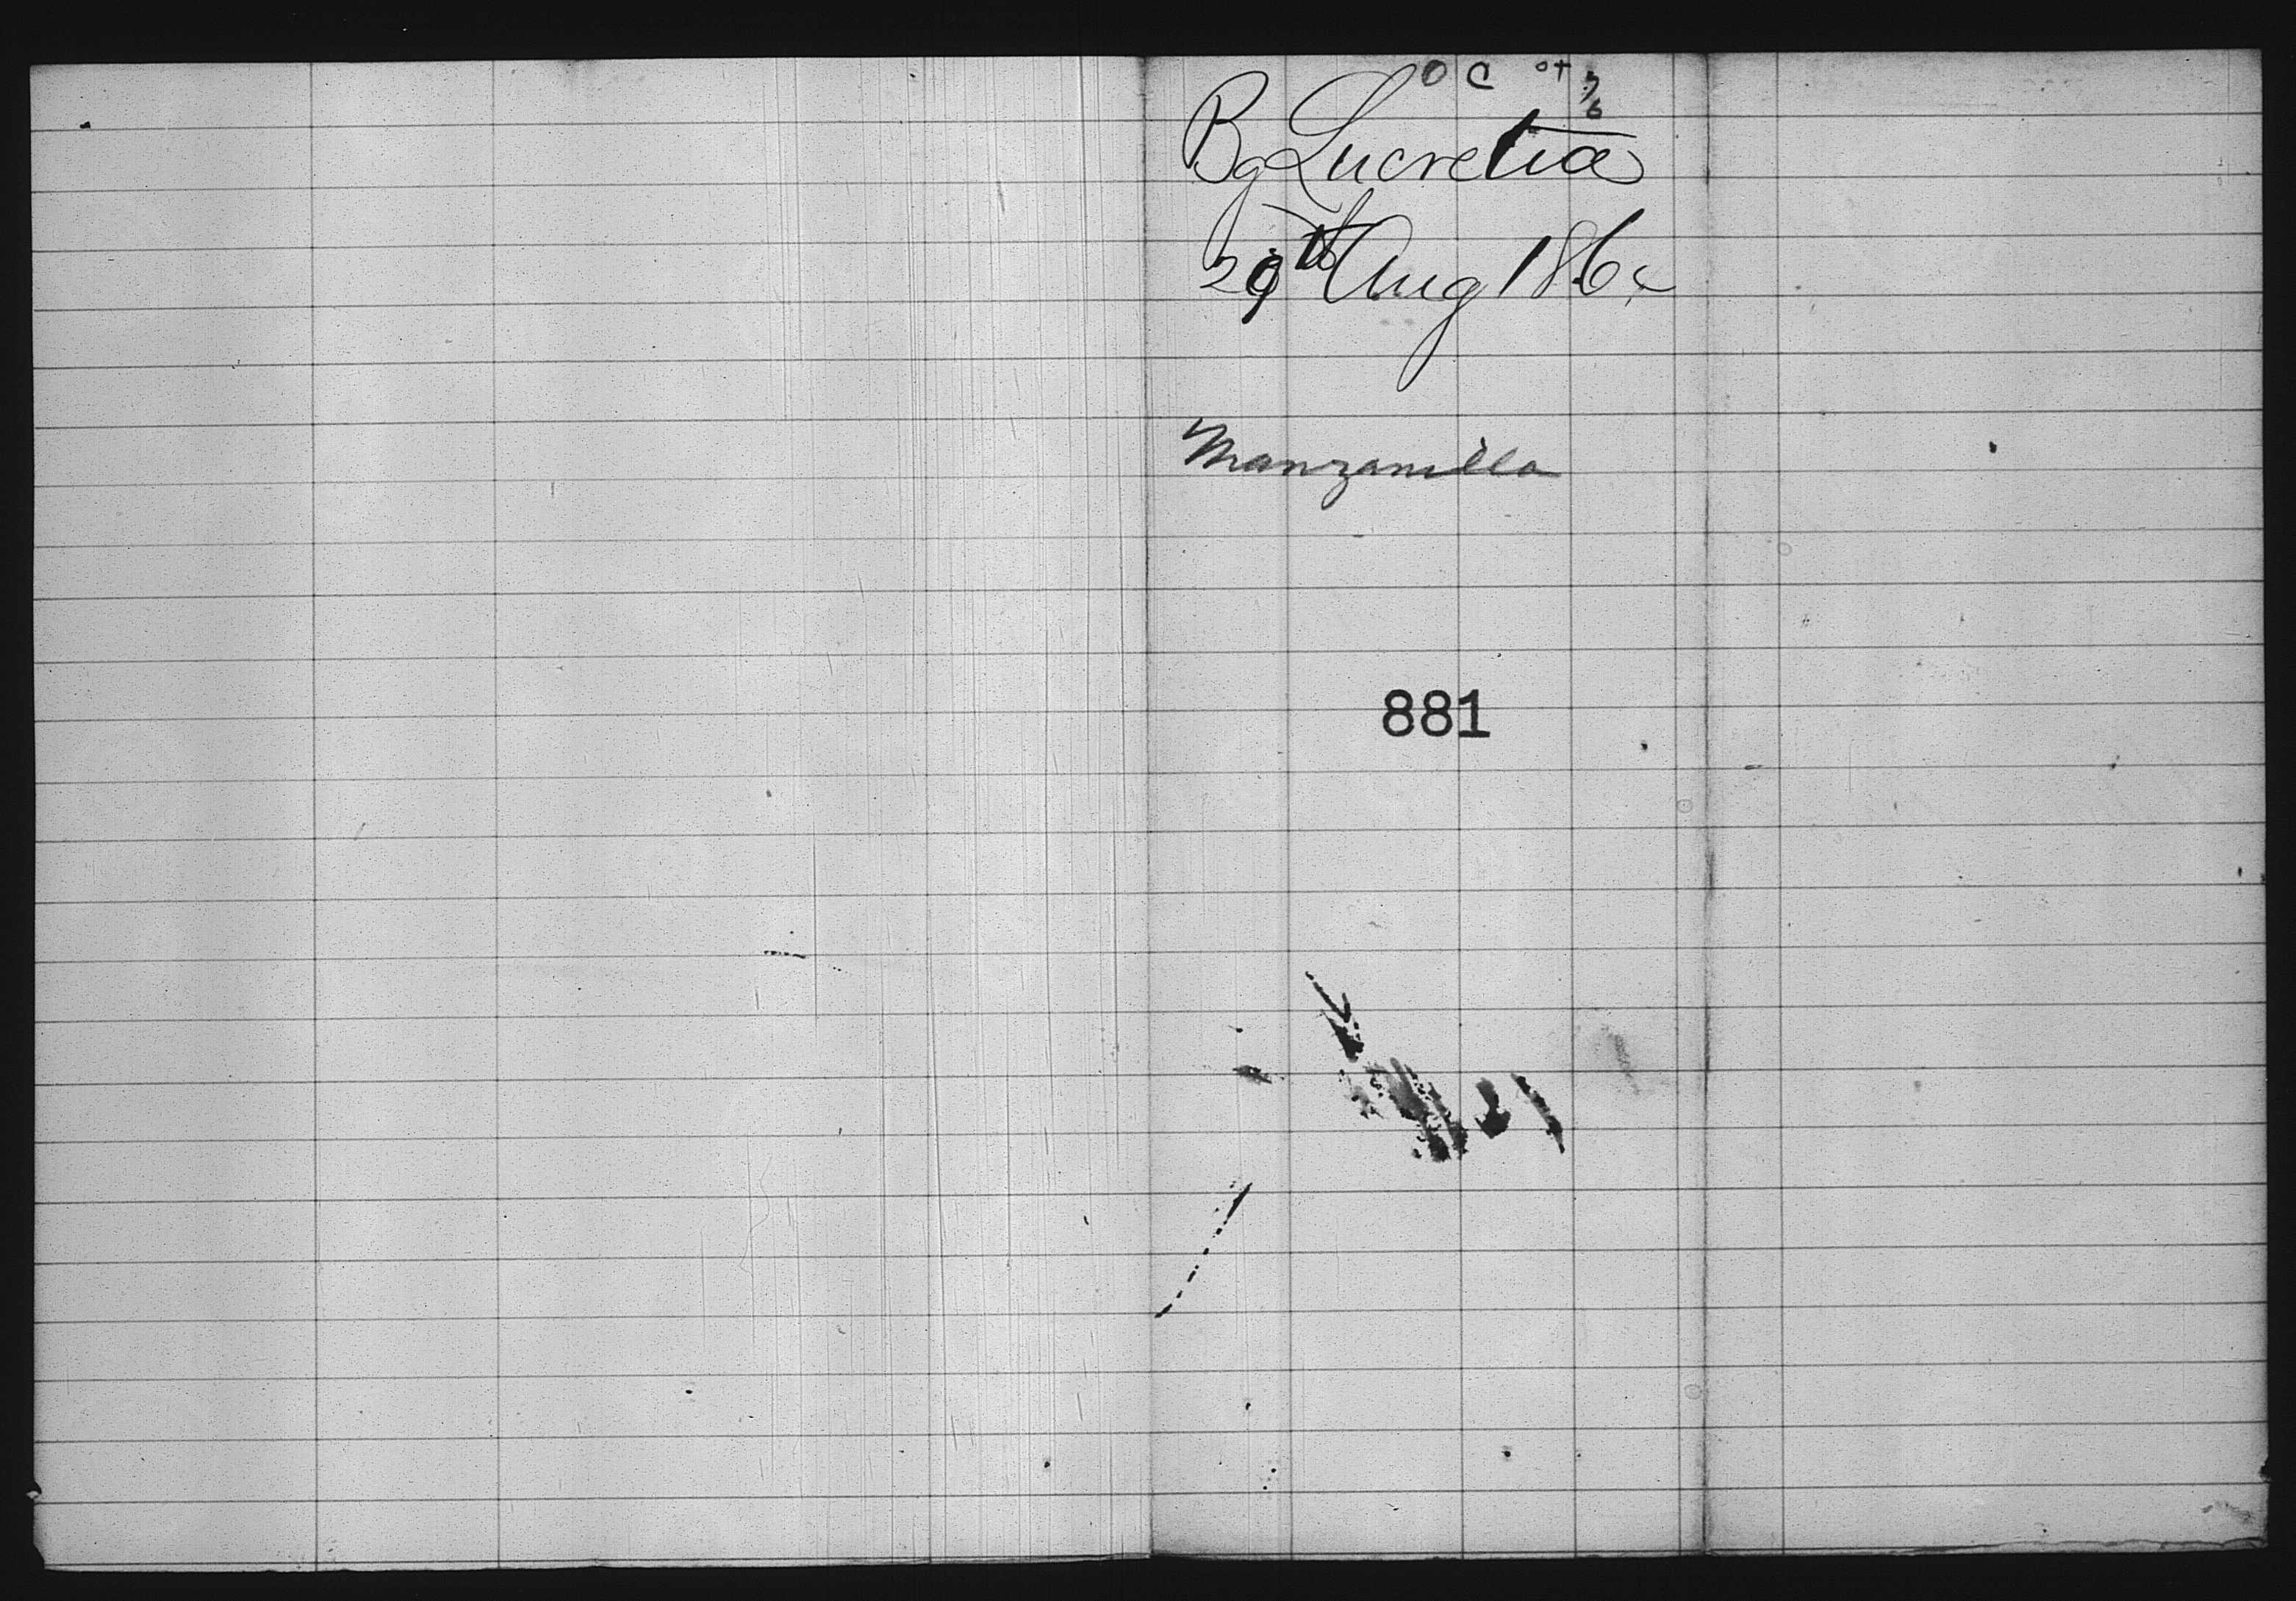 Bg Lucretia
29th Aug 186
Manzanilla
881